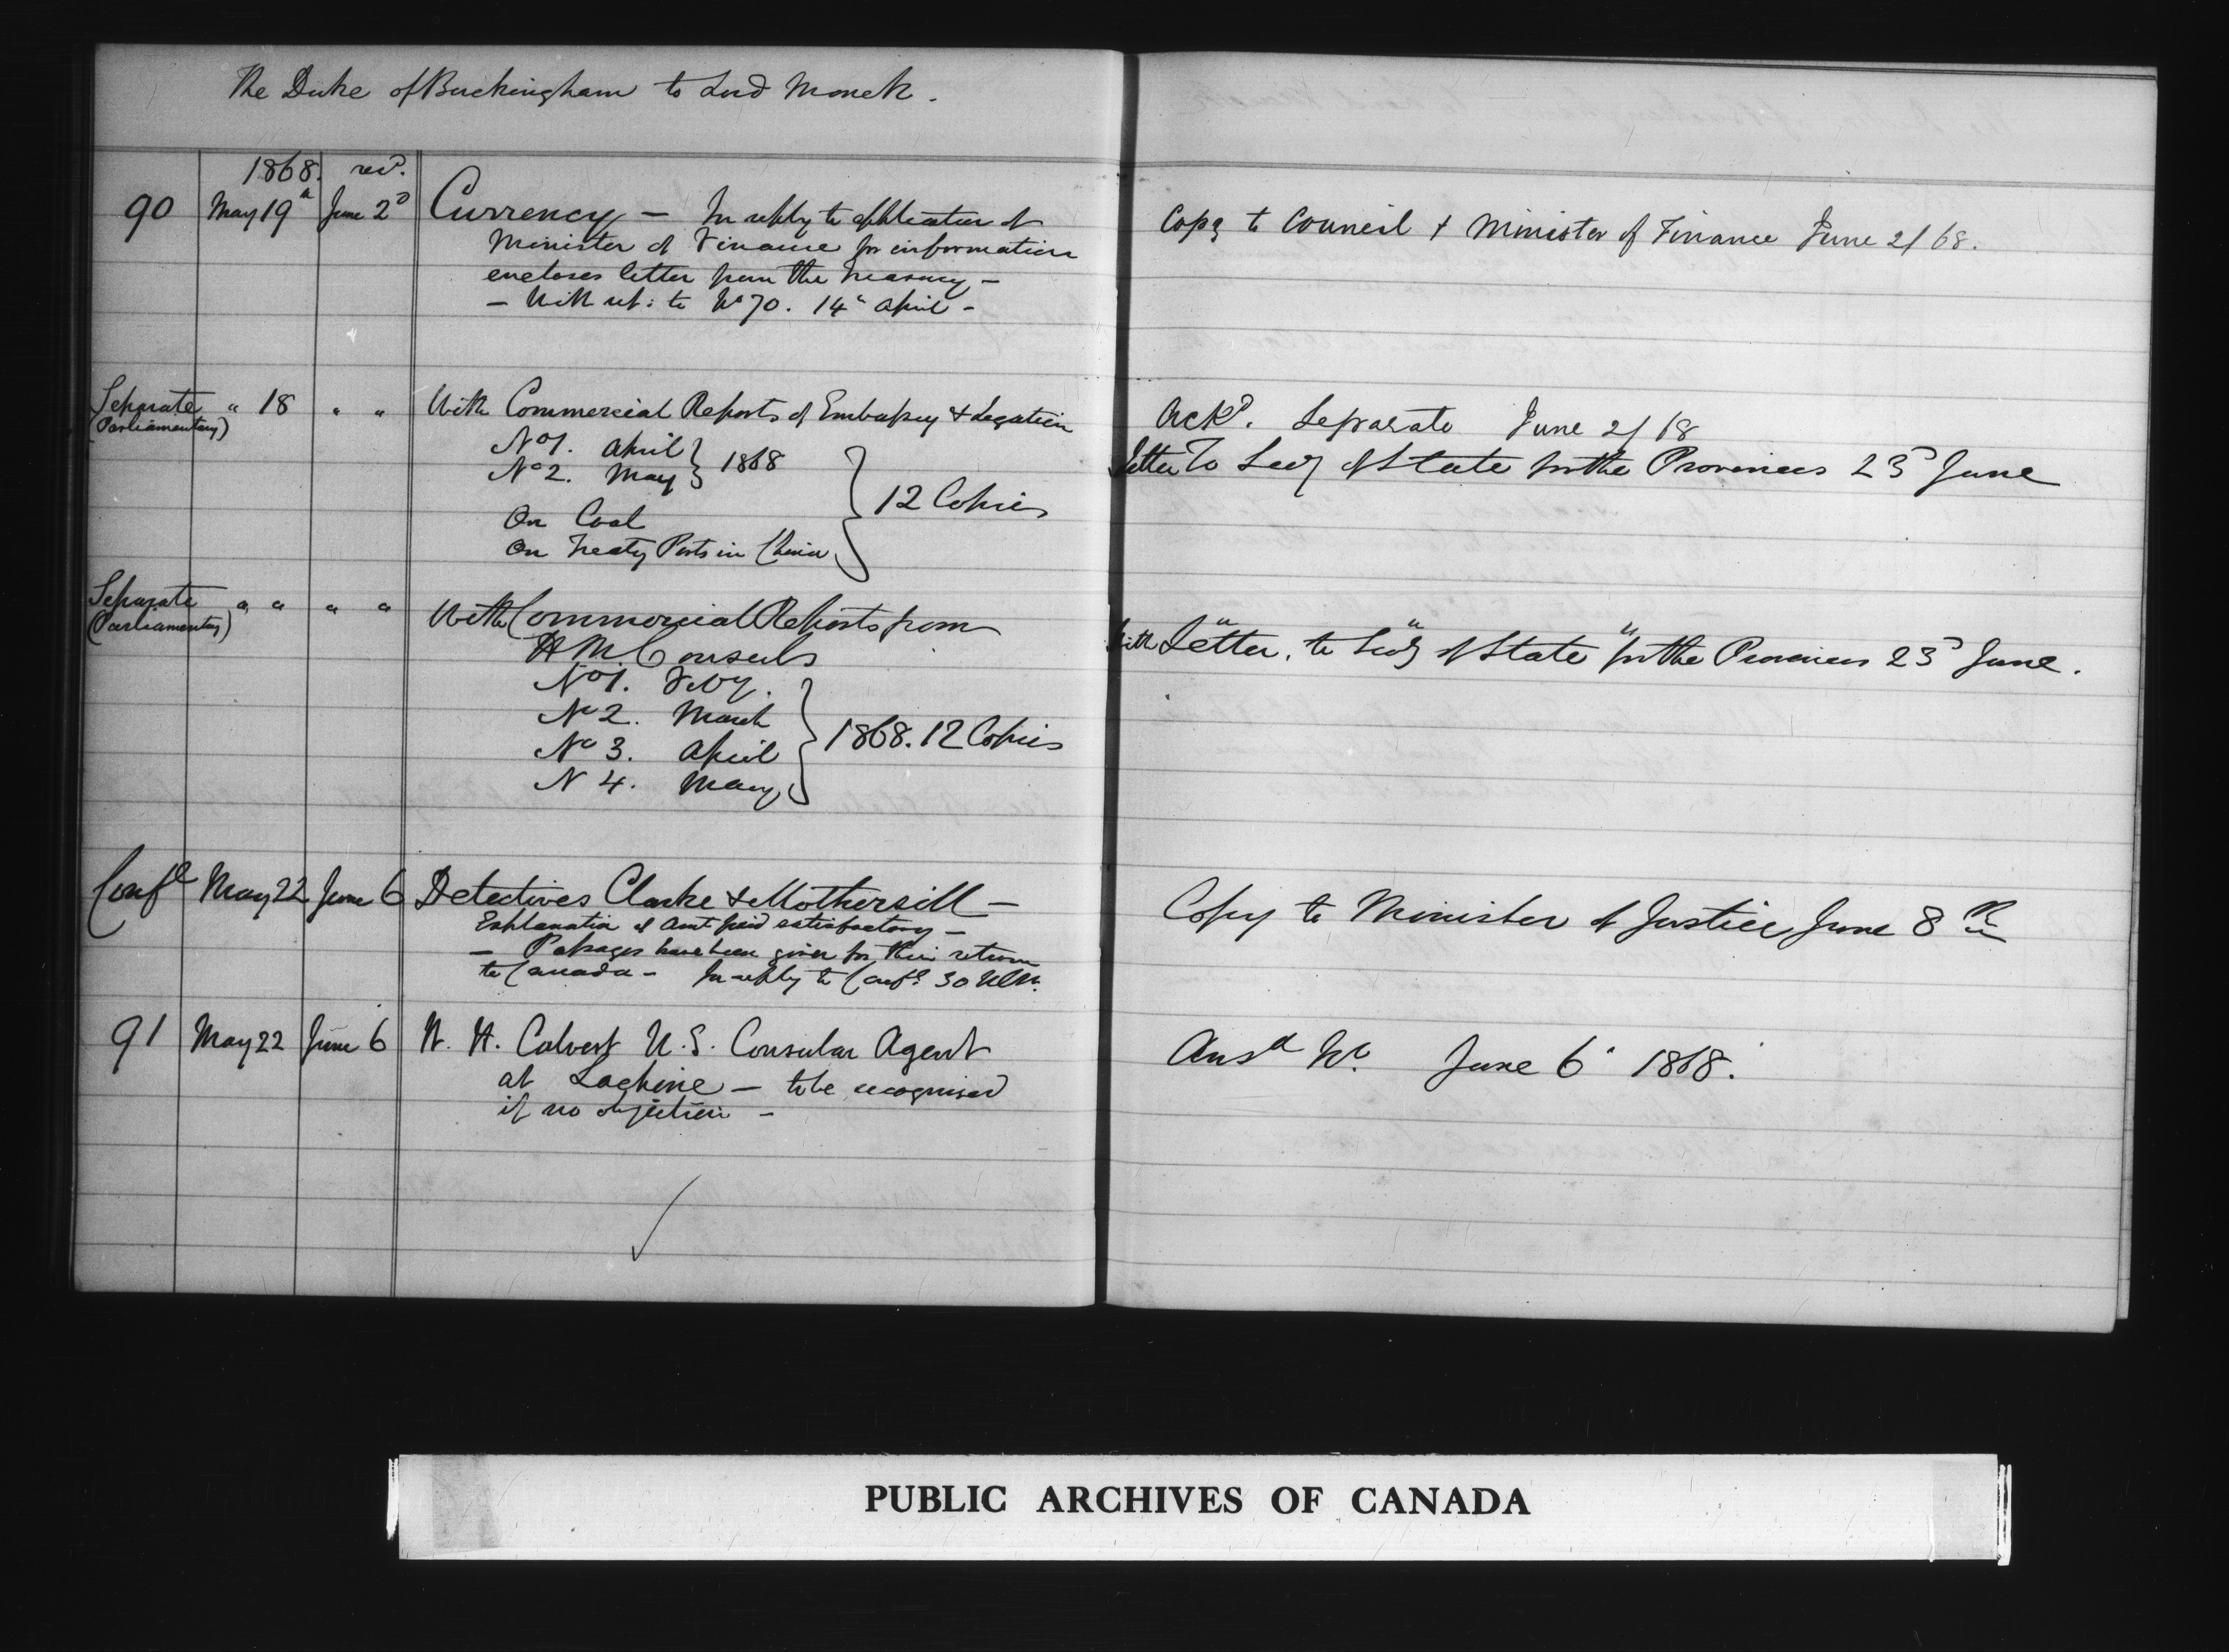 The Duke of Buckingham to Lord Monck.
1868. recd.
90 May 19th June 2d Currency — In reply to application of
Minister of Finance for information
encloses letter from the Treasury —
— With ref: to No 70. 14th April —
Copy to Council & Minister of Finance June 2/68.
Separate " 18 " " With Commercial Reports of Embassy & Legation
(Parliamentary)
No 1. April } 1868
No 2. May
On Coal
On Treaty Ports in China } 12 Copies
Ackd. Separate June 2/68
Letter To Secy of State for the Provinces 23d June
Separate " " " " With Commercial Reports from
(Parliamentary)
H M Consuls
No 1. Feby.
No 2. March
No 3. April } 1868. 12 Copies
N 4. May
" " "
with Letter. to Secy of State for the Provinces 23d June.
Confl May 22 June 6 Detectives Clarke & Mothersill —
Explanation of amt paid satisfactory —
— Passages have been given for their return
to Canada — In reply to Confl 30 Ulto.
Copy to Minister of Justice June 8th
91 May 22 June 6 W. H. Calvert U.S. Consular Agent
at Lachine — to be recognised
if no objection —
Ansd No. June 6th 1868.
PUBLIC ARCHIVES OF CANADA